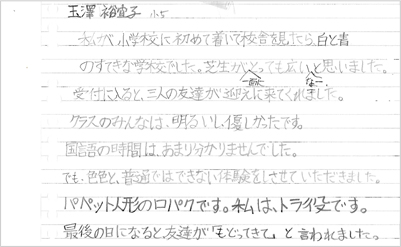 玉澤裕宜子 小5
私が、小学校に初めて着いて校舎を見たら、白と青
のすてきな学校でした。芝生がとっても広いと思いました。
一面に なー
受付に入ると、三人の友達が迎えに来てくれました。
クラスのみんなは、明るいし、優しかったです。
国語の時間は、あまり分かりませんでした。
でも、色色と、普通ではできない体験をしさせていただきました。
パペット人形の口パクです。私は、トライ役です。
最後の日になると、友達が「もどってきて」と言われました。